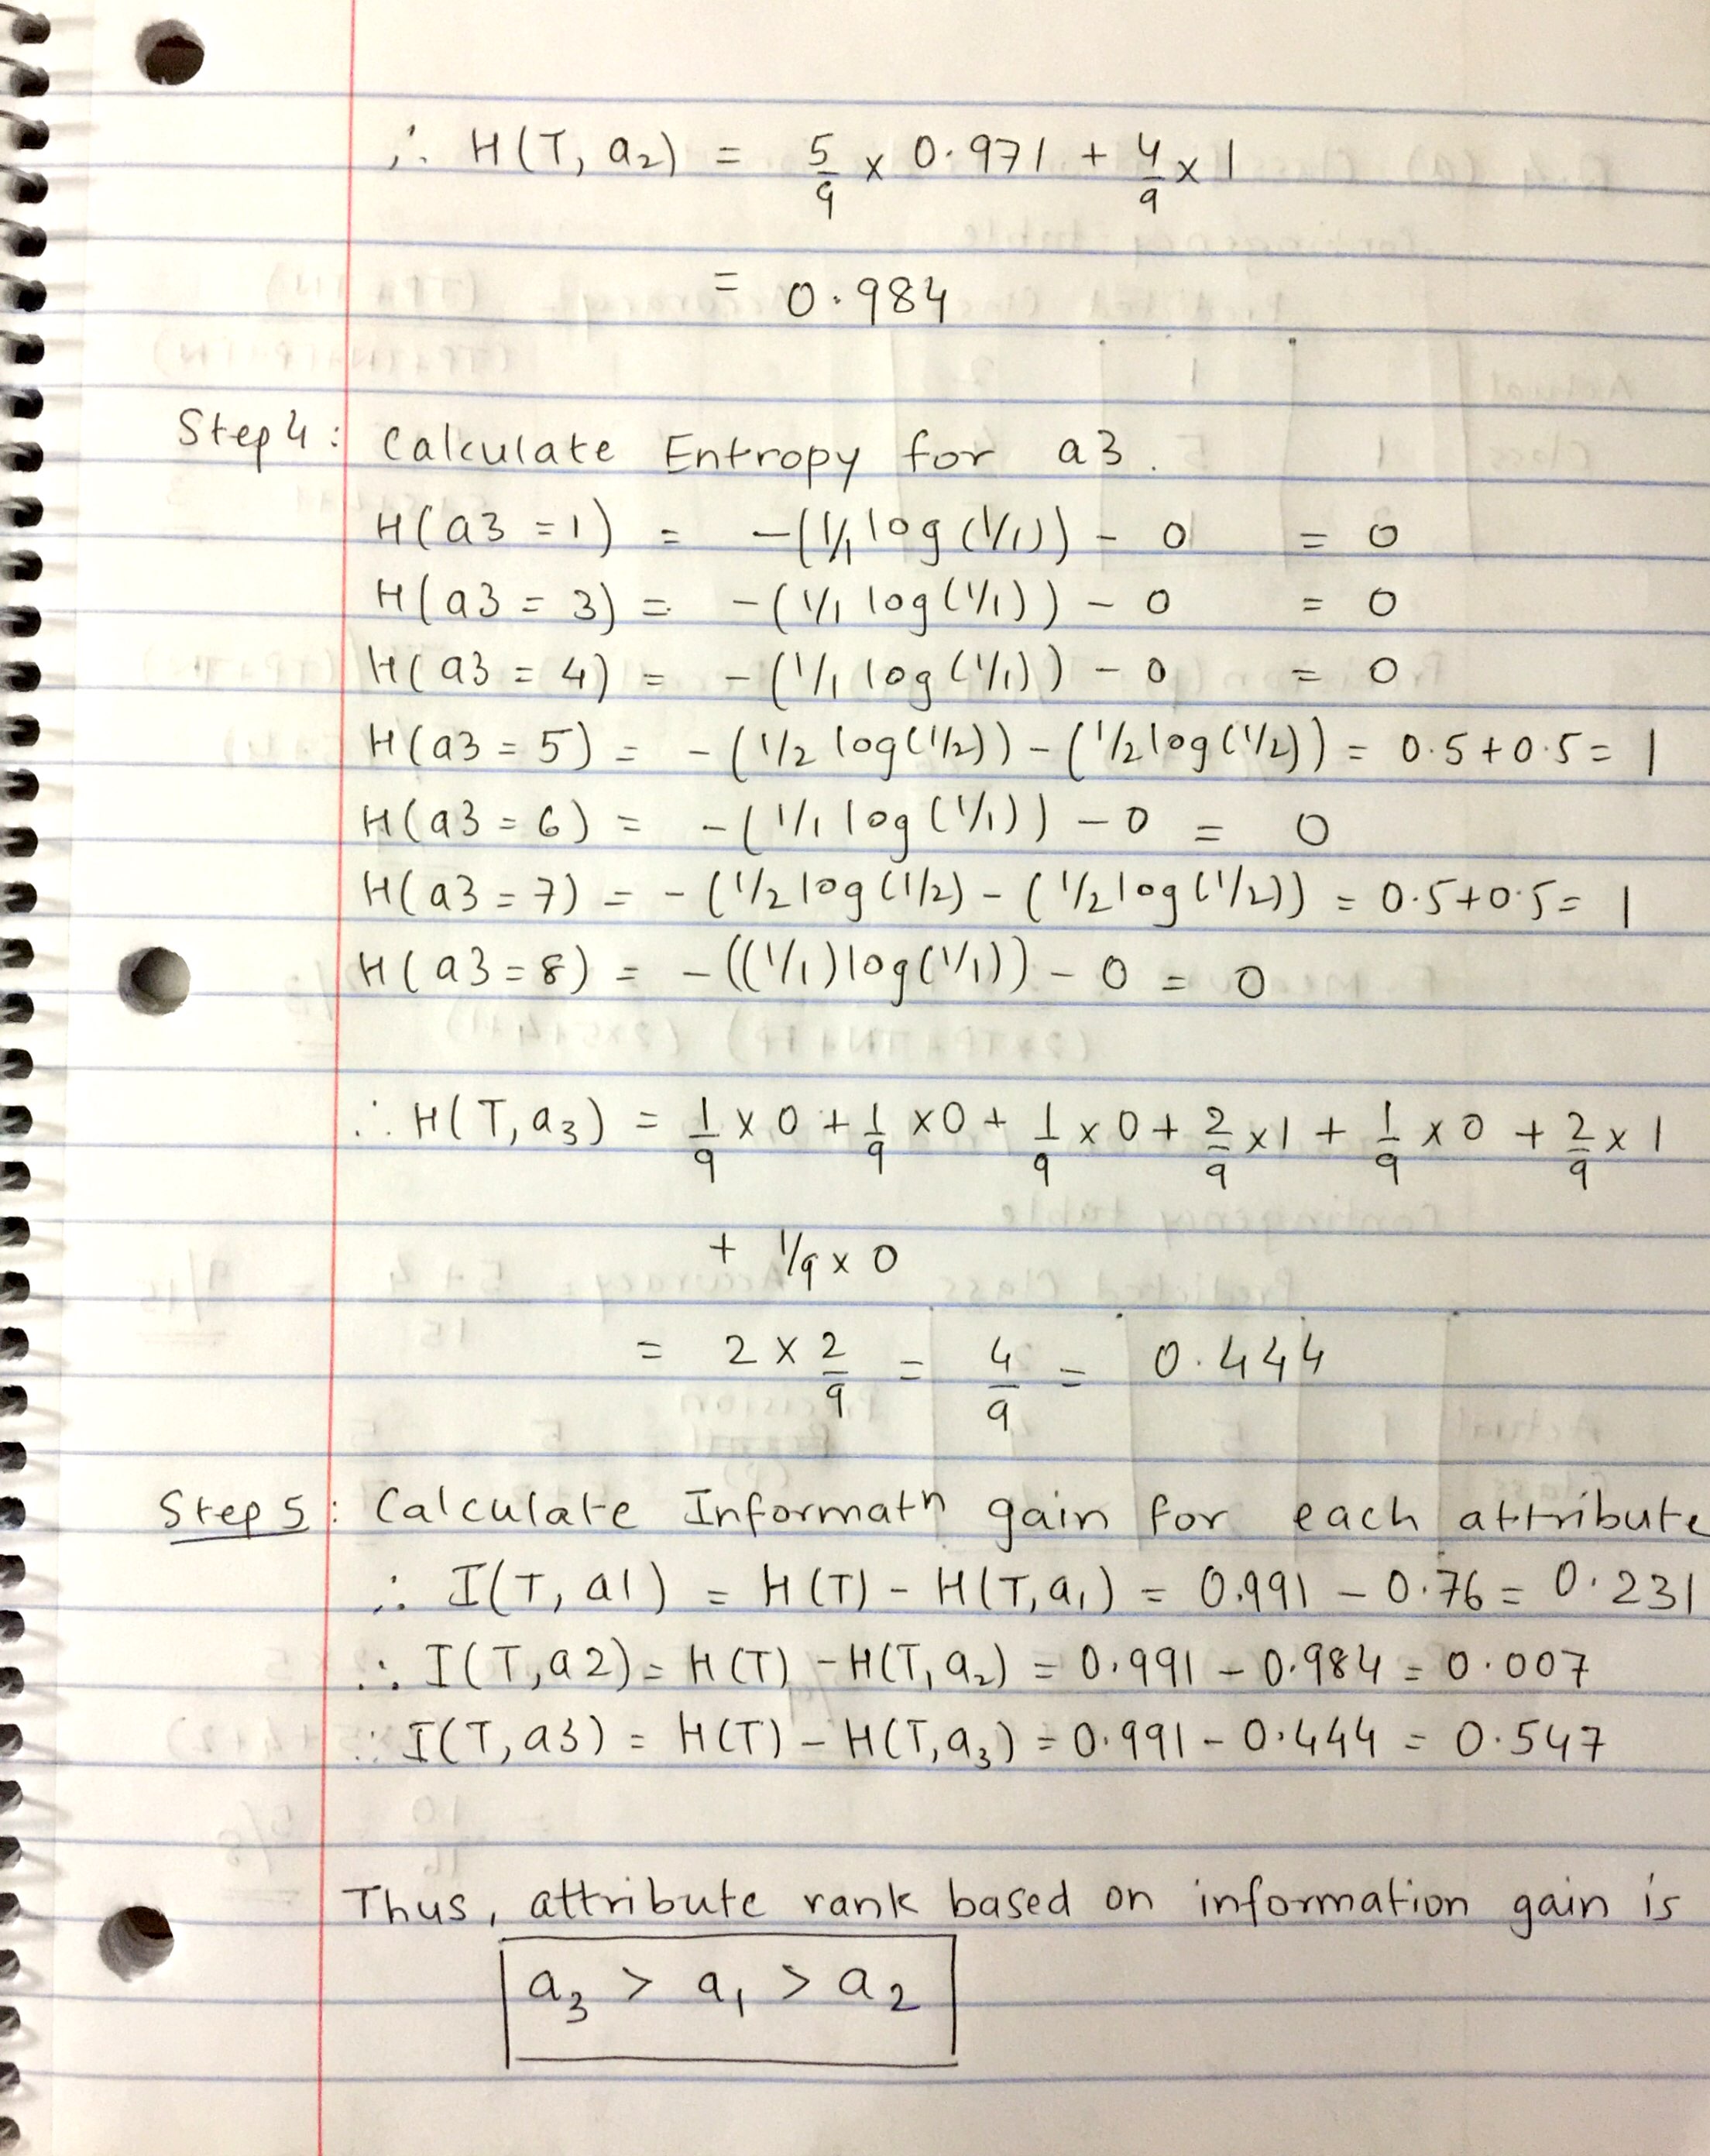 ∴ H(T, a₂) = 5/9 × 0.971 + 4/9 × 1
= 0.984
Step 4: Calculate Entropy for a3.
H(a3 = 1) = -(1/1 log(1/1)) - 0 = 0
H(a3 = 3) = -(1/1 log(1/1)) - 0 = 0
H(a3 = 4) = -(1/1 log(1/1)) - 0 = 0
H(a3 = 5) = -(1/2 log(1/2)) - (1/2 log(1/2)) = 0.5 + 0.5 = 1
H(a3 = 6) = -(1/1 log(1/1)) - 0 = 0
H(a3 = 7) = -(1/2 log(1/2) - (1/2 log(1/2)) = 0.5 + 0.5 = 1
H(a3 = 8) = -((1/1) log(1/1)) - 0 = 0
∴ H(T, a₃) = 1/9 × 0 + 1/9 × 0 + 1/9 × 0 + 2/9 × 1 + 1/9 × 0 + 2/9 × 1
+ 1/9 × 0
= 2 × 2/9 = 4/9 = 0.444
Step 5: Calculate Informatⁿ gain for each attribute
∴ I(T, a1) = H(T) - H(T, a₁) = 0.991 - 0.76 = 0.231
∴ I(T, a2) = H(T) - H(T, a₂) = 0.991 - 0.984 = 0.007
∴ I(T, a3) = H(T) - H(T, a₃) = 0.991 - 0.444 = 0.547
Thus, attribute rank based on information gain is
a₃ > a₁ > a₂